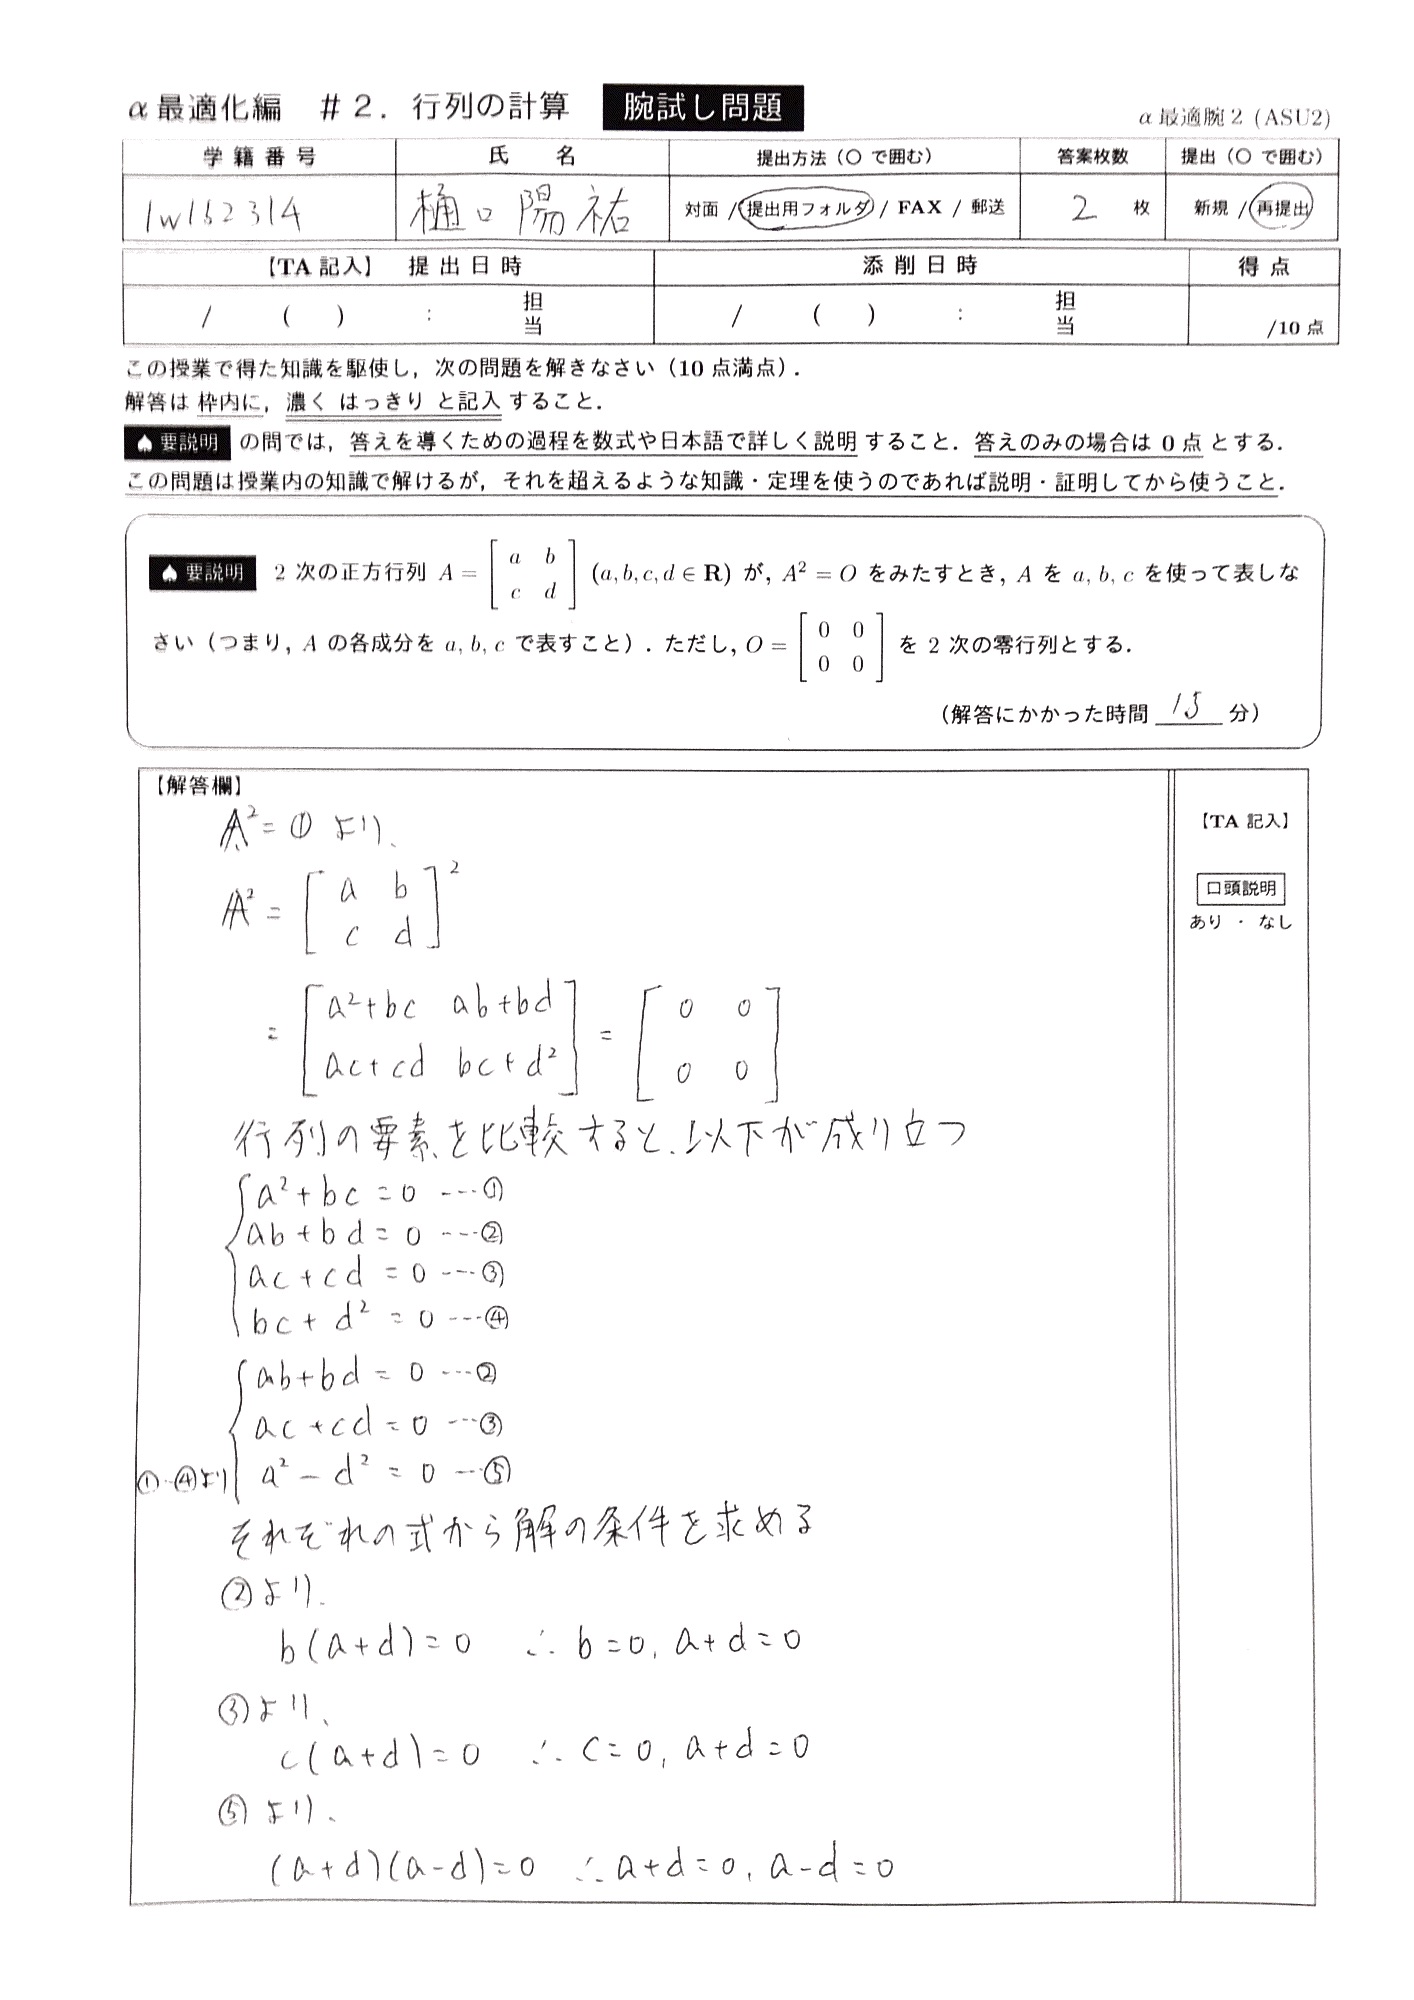 α最適化編 #2. 行列の計算 腕試し問題
α最適腕2 (ASU2)
学籍番号 氏名 提出方法（○で囲む） 答案枚数 提出（○で囲む）
1w162314 樋口陽祐 対面 / 提出用フォルダ / FAX / 郵送 2 枚 新規 / 再提出
【TA記入】 提出日時 添削日時 得点
/ ( ) : 担当 / ( ) : 担当 /10点
この授業で得た知識を駆使し，次の問題を解きなさい（10点満点）．
解答は 枠内に，濃く はっきり と記入 すること．
♠要説明 の問では，答えを導くための過程を数式や日本語で詳しく説明 すること．答えのみの場合は 0点 とする．
この問題は授業内の知識で解けるが，それを超えるような知識・定理を使うのであれば説明・証明してから使うこと．
♠要説明 2次の正方行列 A = [a b; c d] (a, b, c, d ∈ R) が，A² = O をみたすとき，A を a, b, c を使って表しな
さい（つまり，A の各成分を a, b, c で表すこと）．ただし，O = [0 0; 0 0] を 2 次の零行列とする．
（解答にかかった時間 15 分）
【解答欄】
A² = O より、
A² = [a b; c d]²
= [a²+bc ab+bd; ac+cd bc+d²] = [0 0; 0 0]
行列の要素を比較すると、以下が成り立つ
a²+bc=0 …①
ab+bd=0 …②
ac+cd=0 …③
bc+d²=0 …④
ab+bd=0 …②
ac+cd=0 …③
①-④より a²-d²=0 …⑤
それぞれの式から解の条件を求める
②より、
b(a+d)=0 ∴ b=0, a+d=0
③より、
c(a+d)=0 ∴ c=0, a+d=0
⑤より、
(a+d)(a-d)=0 ∴ a+d=0, a-d=0
【TA記入】
口頭説明
あり ・ なし